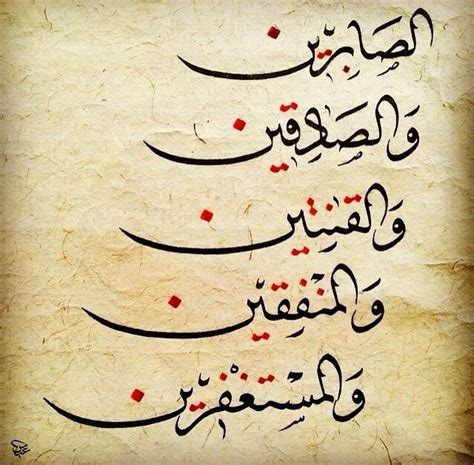 الصَابِرِين
وَالصَادِقين
وَالقٰنِتين
وَالمُنْفِقين
وَالمُسْتَغْفِرين